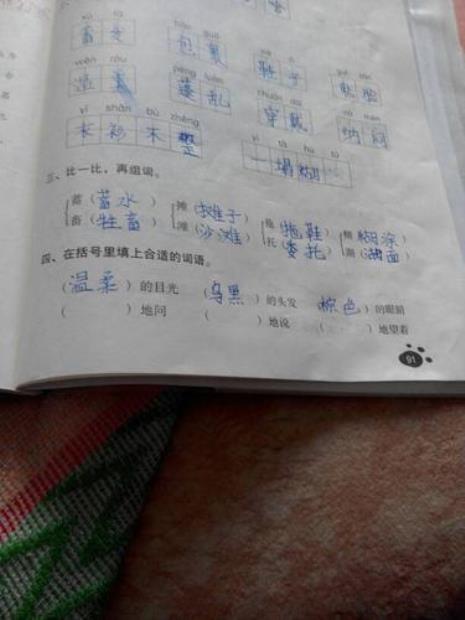 包裹 鞋子
wēn róu péng luàn
温柔 蓬乱 穿戴 纳闷
yī shān bù zhěng yī tā hú tú
衣衫不整 一塌糊
三、比一比，再组词。
蓄（蓄水） 摊（摊子） 拖（拖鞋） 糊（糊涂）
畜（牲畜） 滩（沙滩） 托（委托） 湖（湖面）
四、在括号里填上合适的词语。
（温柔）的目光 （乌黑）的头发 （棕色）的眼睛
（ ）地问 （ ）地说 （ ）地望着
91